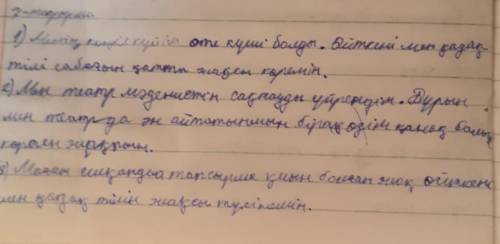 1) Менің көңіл күйім өте күші болды. Өйткені мен қазақ-
тілі сабағын қатты жақсы көремін.
2) Мен театр мәдениетін сақтауды үйрендім. Бұрын
мен театрда ән айтатынмын бірақ өзім қанық болып
көрген жоқпын.
3) Маған ешқандай тапсырма қиын болған жоқ өйткені
мен қазақ тілін жақсы түсінемін.